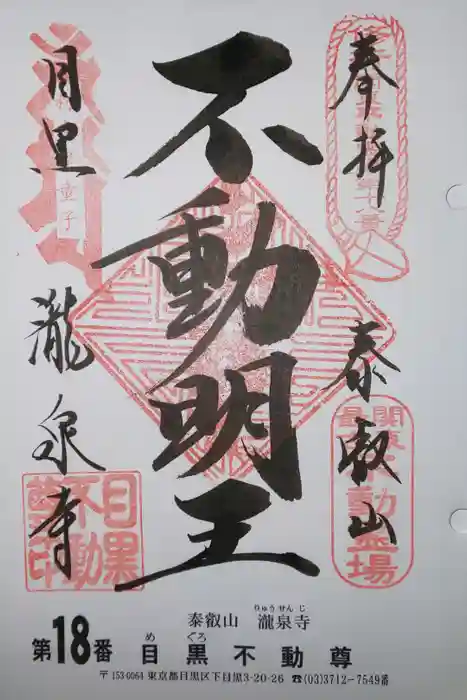 奉拝
泰叡山
不動明王
目黒
瀧泉寺
童子
関東
最
不動霊場
目黒
不動
尊印
泰叡山 瀧泉寺
りゅうせんじ
第18番 目黒不動尊
め ぐろ
〒153-0064 東京都目黒区下目黒3-20-26 ☎(03)3712-7549番